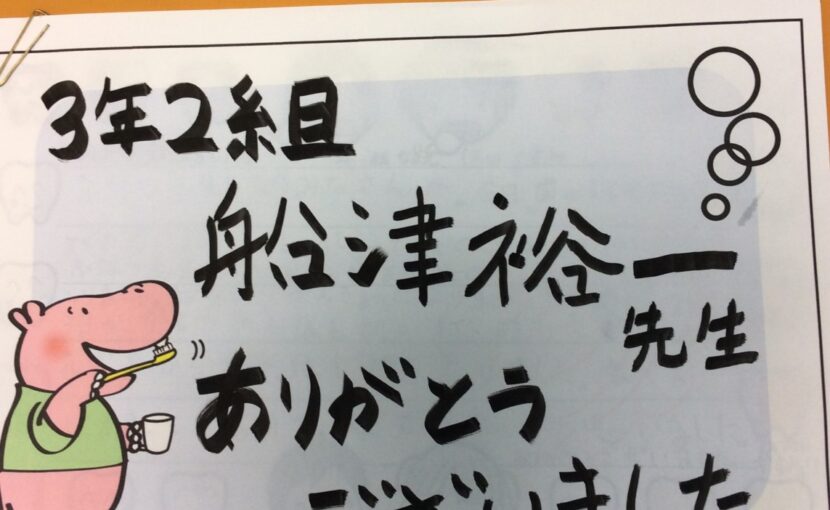 3年2組
船津裕一
先生
ありがとう
ございました